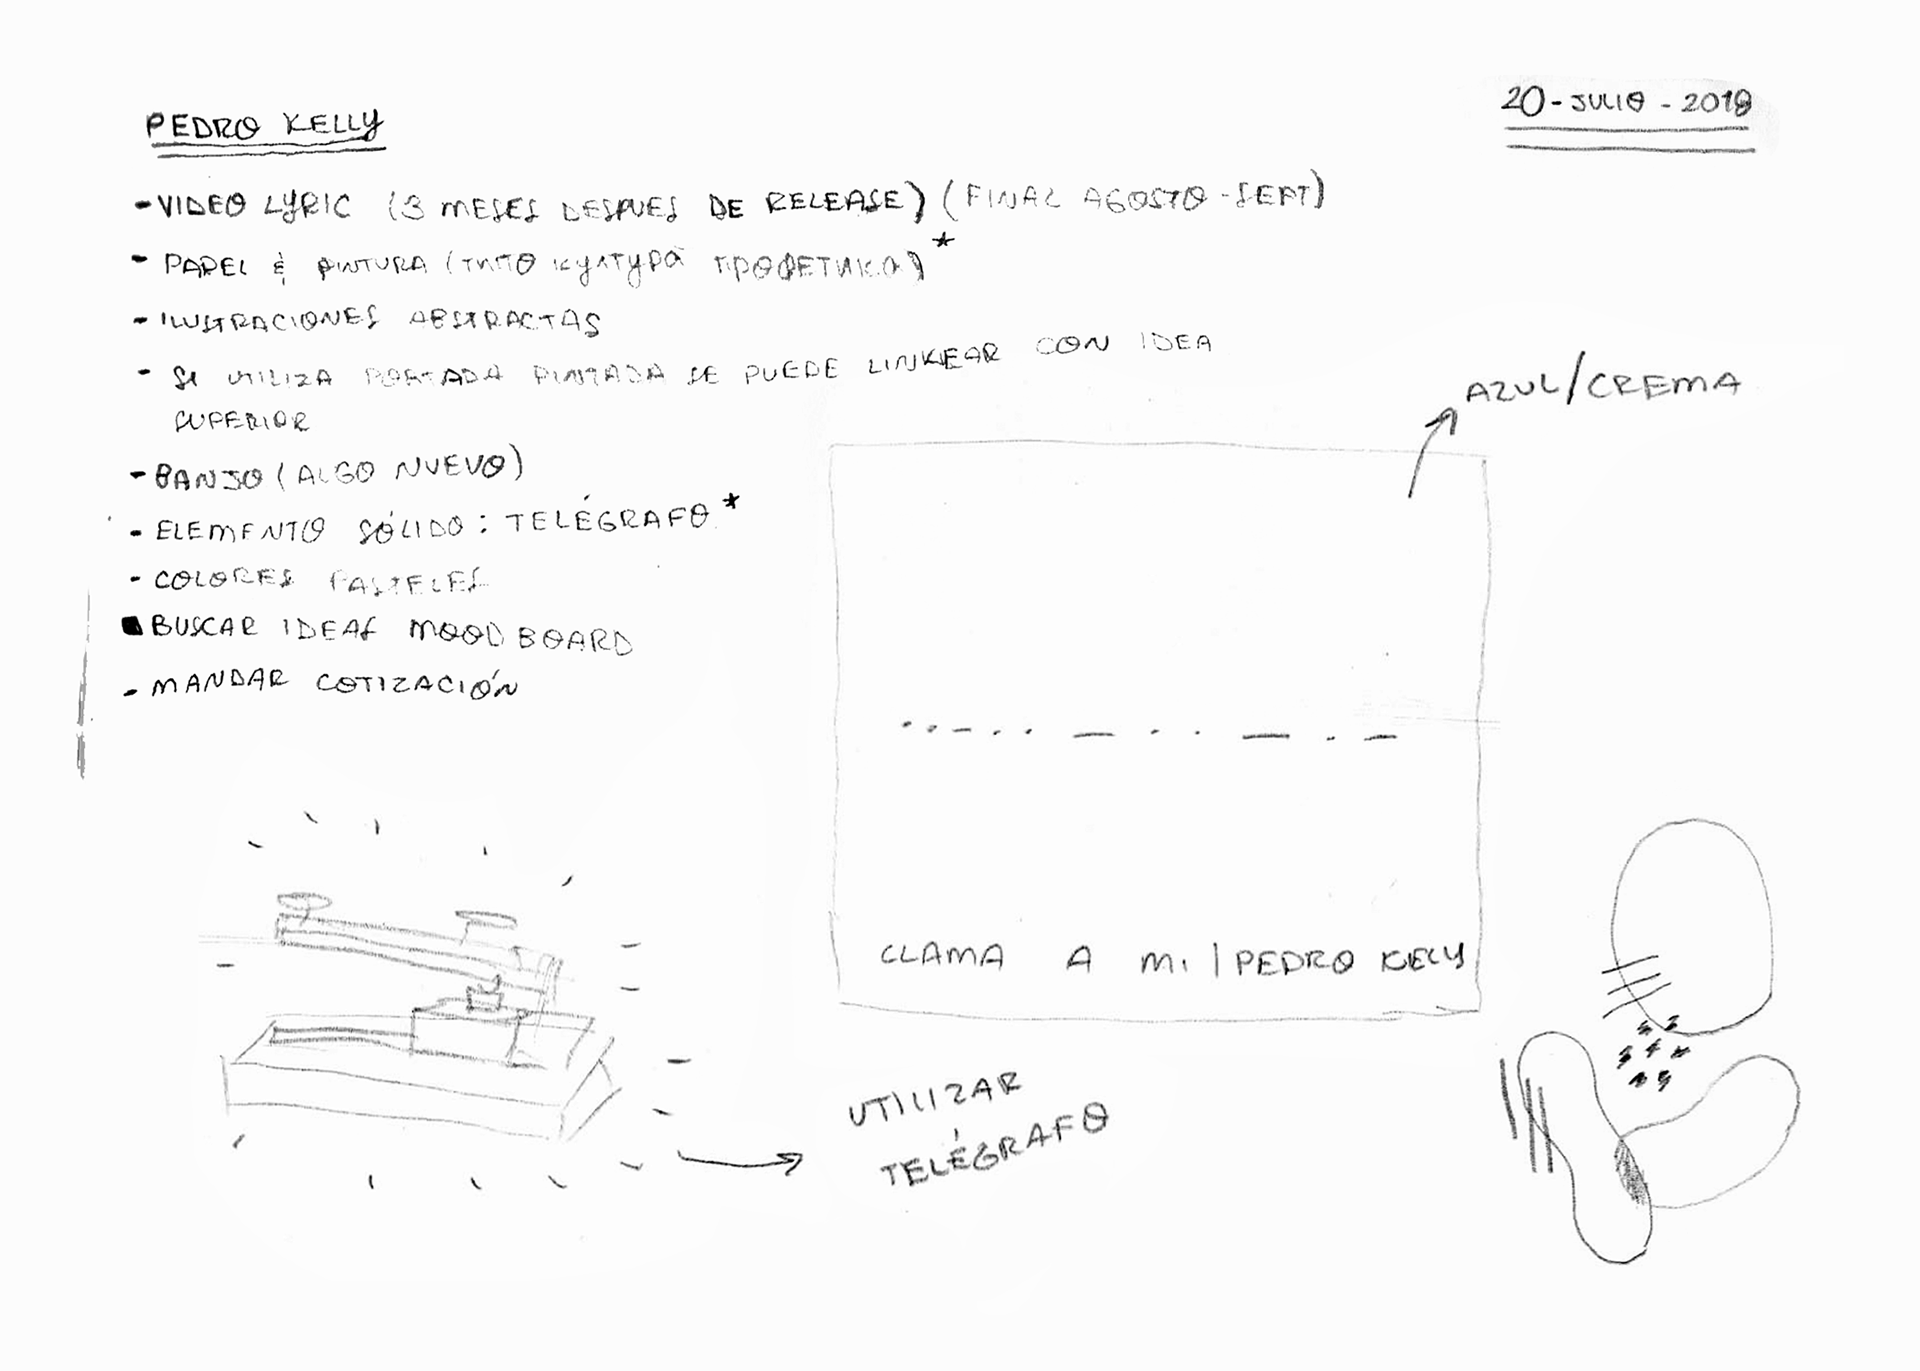 PEDRO KELLY
20-JULIO-2018
- VIDEO LYRIC (3 MESES DESPUES DE RELEASE) (FINAL AGOSTO-SEPT)
- PAPEL & PINTURA (ТИПО КУЛТУРА ПРОФЕТИКА)*
- ILUSTRACIONES ABSTRACTAS
- SI UTILIZA PORTADA PINTADA SE PUEDE LINKEAR CON IDEA
SUPERIOR
AZUL/CREMA
- BANJO (ALGO NUEVO)
- ELEMENTO SÓLIDO: TELÉGRAFO*
- COLORES PASTELES
■ BUSCAR IDEAS MOODBOARD
- MANDAR COTIZACIÓN
CLAMA A MI | PEDRO KELLY
UTILIZAR
TELÉGRAFO